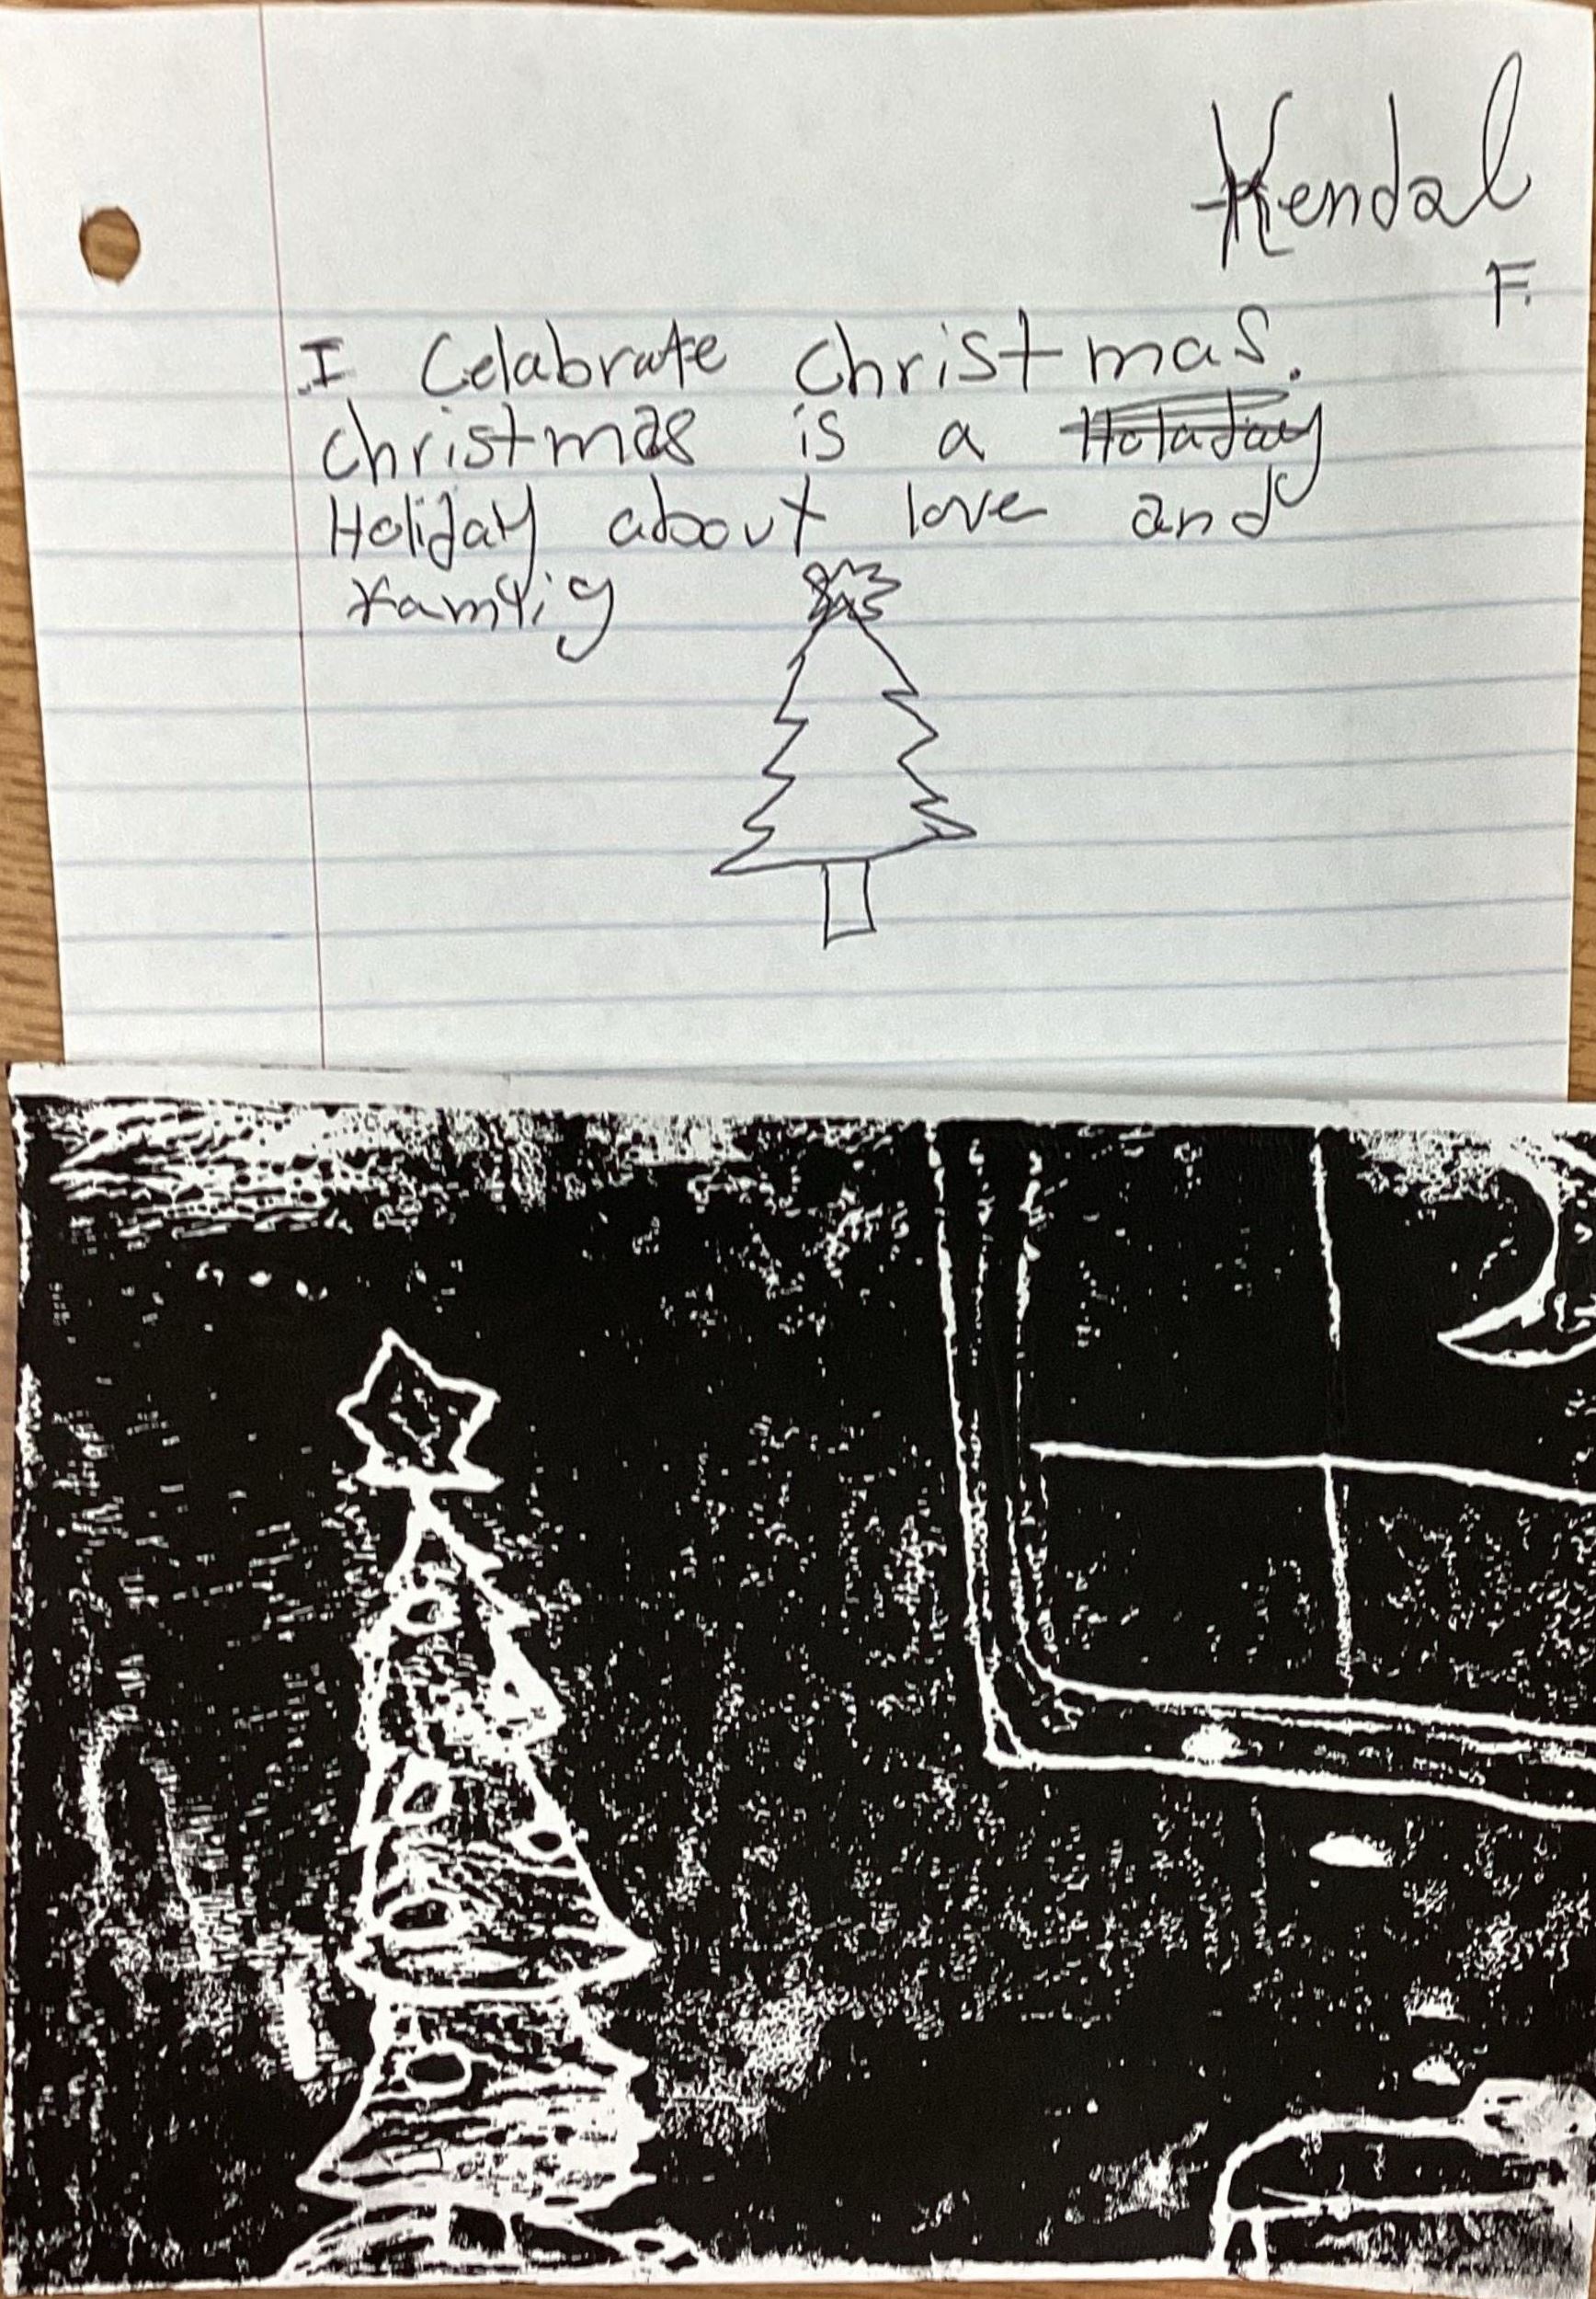 Kendal
F.
I Celabrate christmas.
christmas is a Holaday
Holiday about love and